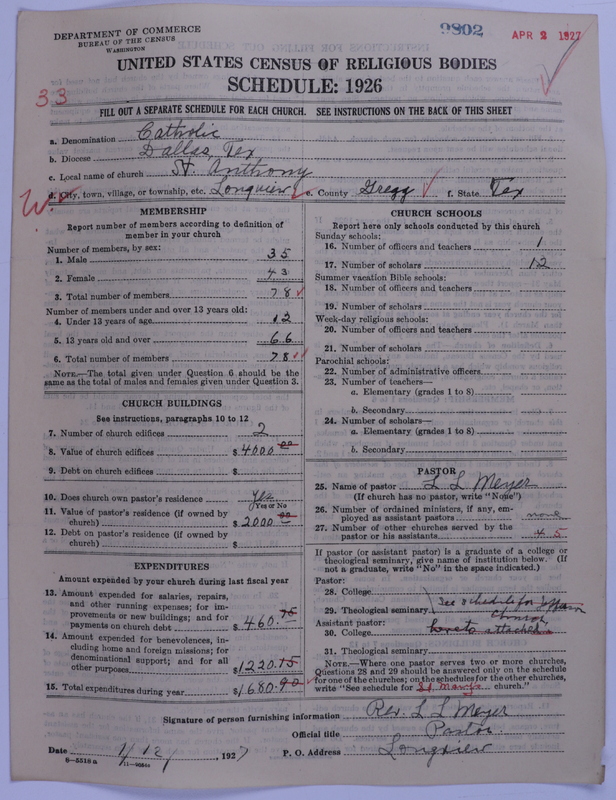 DEPARTMENT OF COMMERCE
BUREAU OF THE CENSUS
WASHINGTON
9802
APR 2 1927
UNITED STATES CENSUS OF RELIGIOUS BODIES
SCHEDULE: 1926
33
FILL OUT A SEPARATE SCHEDULE FOR EACH CHURCH. SEE INSTRUCTIONS ON THE BACK OF THIS SHEET
a. Denomination Catholic
b. Diocese Dallas, Tex
c. Local name of church St. Anthony
d. City, town, village, or township, etc. Longview e. County Gregg f. State Tex
MEMBERSHIP
Report number of members according to definition of
member in your church
Number of members, by sex:
1. Male 35
2. Female 43
3. Total number of members 78
Number of members under and over 13 years old:
4. Under 13 years of age 12
5. 13 years old and over 66
6. Total number of members 78
NOTE.—The total given under Question 6 should be
same as the total of males and females given under Question 3.
CHURCH BUILDINGS
See instructions, paragraphs 10 to 12
7. Number of church edifices 2
8. Value of church edifices $4000.00
9. Debt on church edifices $
10. Does church own pastor's residence yes
Yes or No
11. Value of pastor's residence (if owned by
church) $2000.00
12. Debt on pastor's residence (if owned by
church) $
EXPENDITURES
Amount expended by your church during last fiscal year
13. Amount expended for salaries, repairs,
and other running expenses; for im-
provements or new buildings; and for
payments on church debt $460.75
14. Amount expended for benevolences, in-
cluding home and foreign missions; for
denominational support; and for all
other purposes $1220.15
15. Total expenditures during year $1680.90
CHURCH SCHOOLS
Report here only schools conducted by this church
Sunday schools:
16. Number of officers and teachers 1
17. Number of scholars 12
Summer vacation Bible schools:
18. Number of officers and teachers
19. Number of scholars
Week-day religious schools:
20. Number of officers and teachers
21. Number of scholars
Parochial schools:
22. Number of administrative officers
23. Number of teachers—
a. Elementary (grades 1 to 8)
b. Secondary
24. Number of scholars—
a. Elementary (grades 1 to 8)
b. Secondary
PASTOR
25. Name of pastor L L Meyer
(If church has no pastor, write "None")
26. Number of ordained ministers, if any, em-
ployed as assistant pastors none
27. Number of other churches served by the
pastor or his assistants 4 5
If pastor (or assistant pastor) is a graduate of a college or
theological seminary, give name of institution below. (If
not a graduate, write "No" in the space indicated.)
Pastor:
28. College
29. Theological seminary See schedule for
Church
Assistant pastor:
30. College hereto attached
31. Theological seminary
NOTE.—Where one pastor serves two or more churches,
Questions 28 and 29 should be answered only on the schedule
for one of the churches; on the schedules for the other churches,
write "See schedule for St Marys church."
Signature of person furnishing information Rev. L L Meyer
Official title Pastor
Date 1/12/, 1927 P. O. Address Longview
8—5318 a